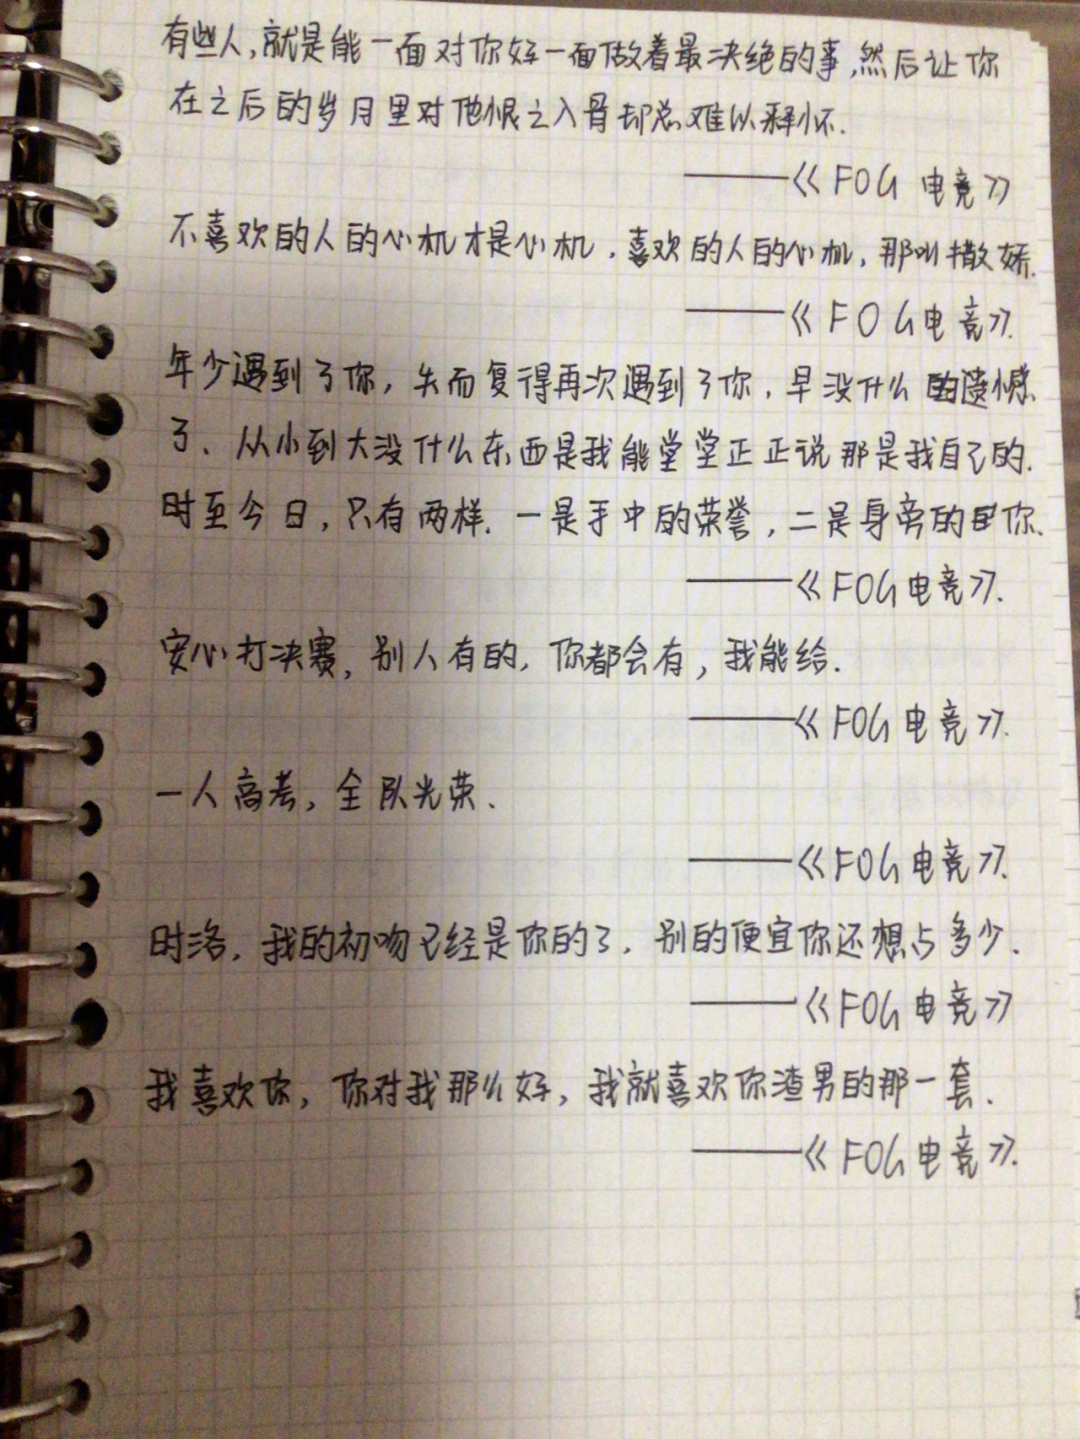 有些人,就是能一面对你好一面做着最决绝的事,然后让你
在之后的岁月里对他恨之入骨却总难以释怀.
——《FOG 电竞》
不喜欢的人的心机才是心机.喜欢的人的心机,那叫撒娇.
——《FOG电竞》.
年少遇到了你,失而复得再次遇到了你,早没什么遗憾
了、从小到大没什么东西是我能堂堂正正说那是我自己的.
时至今日,只有两样.一是手中的荣誉,二是身旁的你.
——《FOG电竞》.
安心打决赛,别人有的,你都会有,我能给.
——《FOG电竞》.
一人高考,全队光荣、
——《FOG电竞》.
时洛,我的初吻已经是你的了.别的便宜你还想占多少.
——《FOG电竞》
我喜欢你,你对我那么好,我就喜欢你渣男的那一套.
——《FOG电竞》.